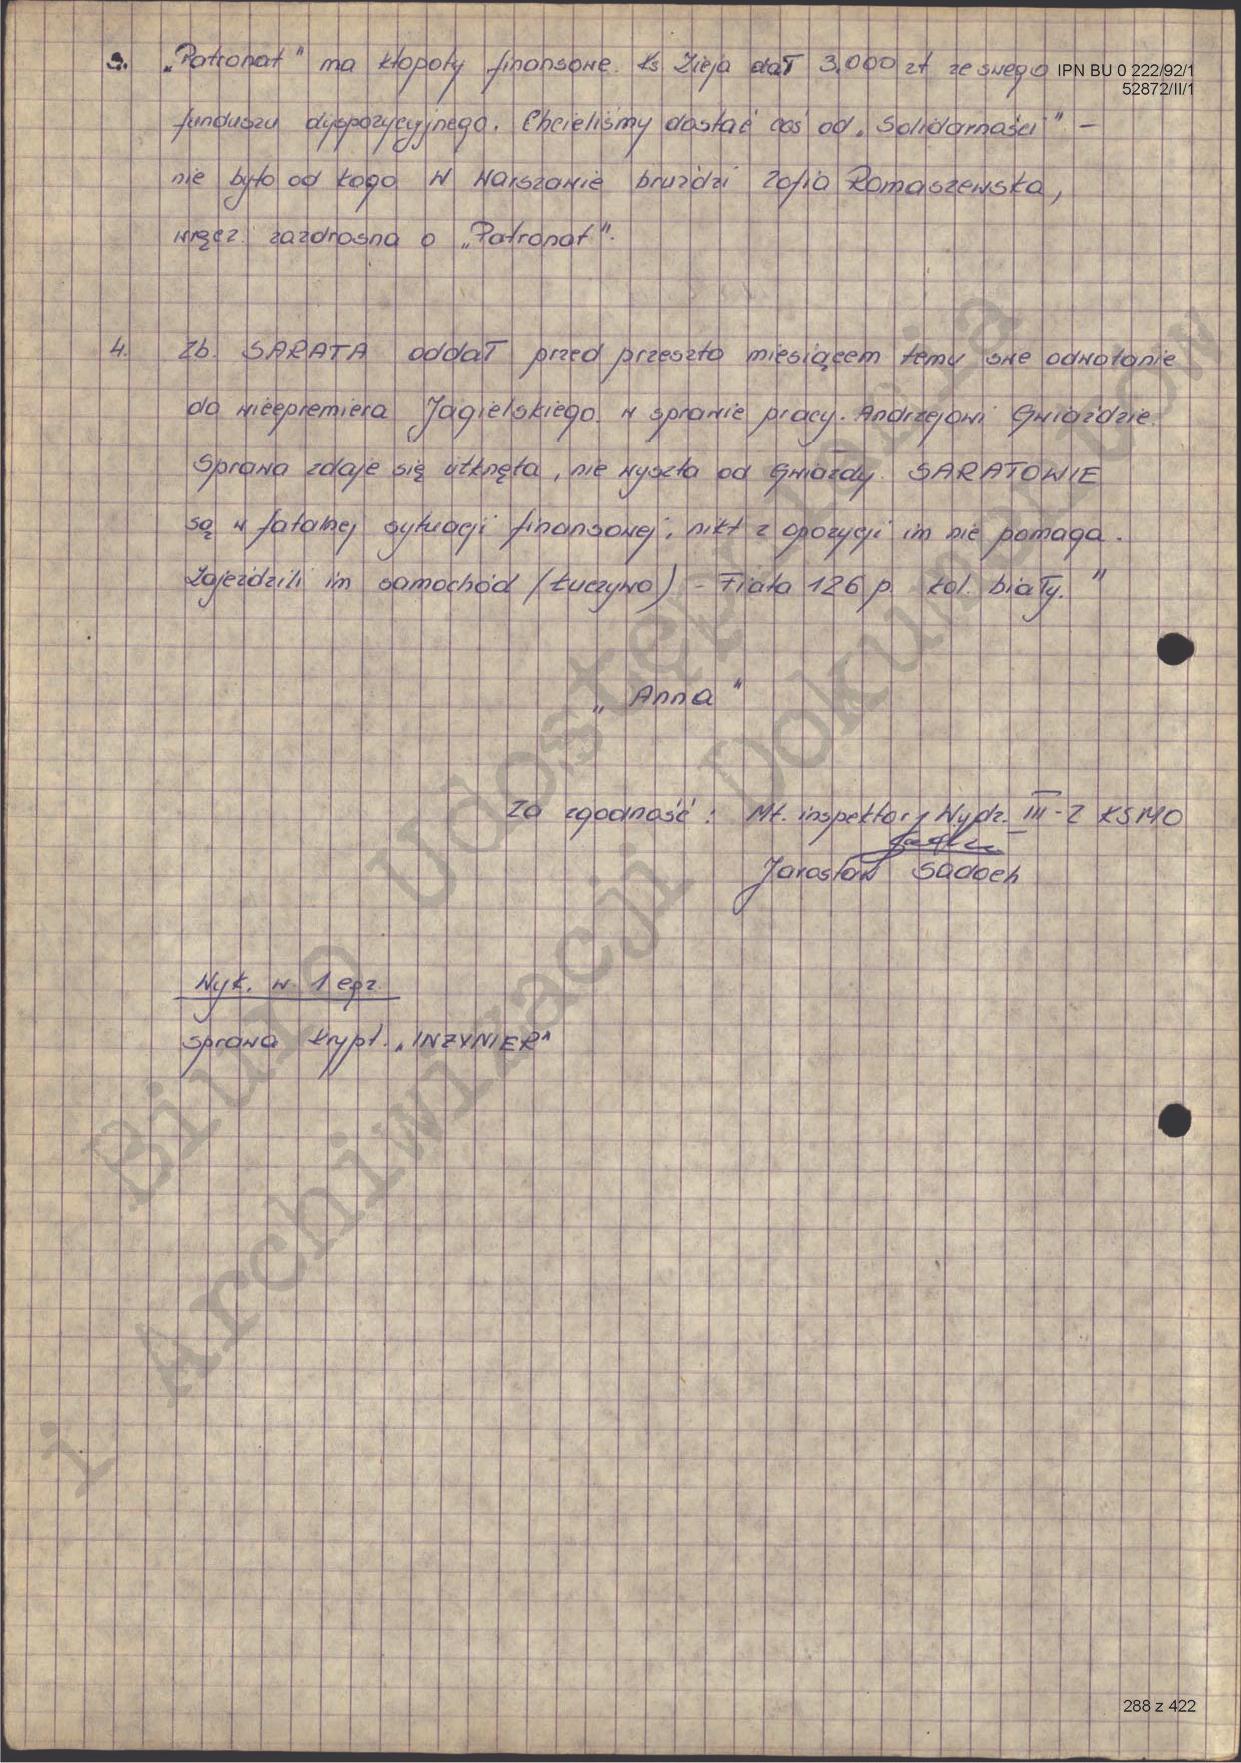 3. „Patronat" ma kłopoty finansowe. Ks Zieja dał 3.000 zł ze swego
IPN BU 0 222/92/1
52872/II/1
funduszu dyspozycyjnego. Chcieliśmy dostać coś od „Solidarności" –
nie było od kogo W Warszawie bruździ Zofia Romaszewska,
wręcz zazdrosna o „Patronat".
4. Zb. SARATA oddał przed przeszło miesiącem temu swe odwołanie
do wicepremiera Jagielskiego w sprawie pracy. Andrzejowi Gwiaździe.
Sprawa zdaje się utknęła, nie wyszła od Gwiazdy. SARATOWIE
są w fatalnej sytuacji finansowej, nikt z opozycji im nie pomaga.
Zajeździli im samochód (Łuczywo) – Fiata 126 p. kol. biały."
„Anna"
Za zgodność: Mł. inspektor Wydz. III-2 KSMO
Jarosław Sadoch
Wyk. w 1 egz.
sprawa krypt. „INŻYNIER"
Biuro Udostępniania
i Archiwizacji Dokumentów
288 z 422